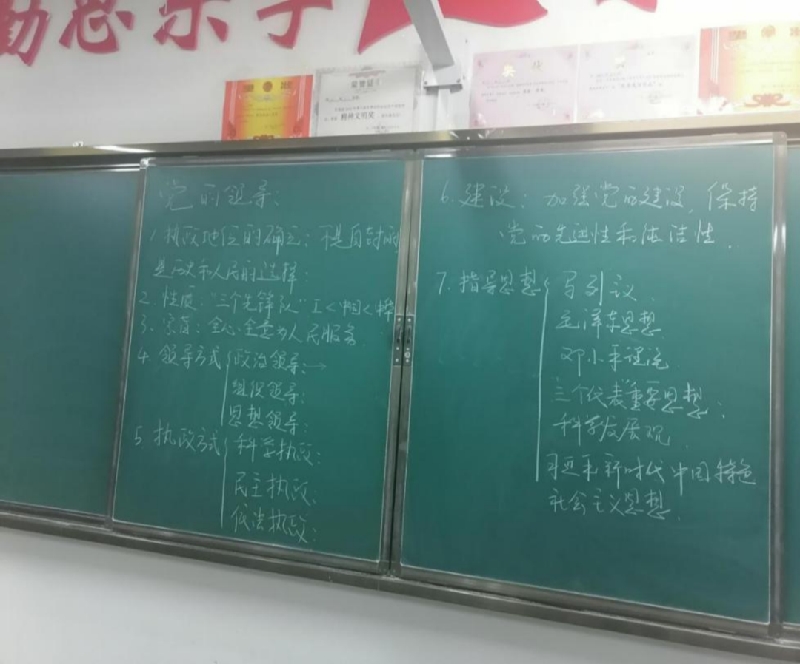 勤思乐学
荣誉证书
精神文明奖
奖状
党的领导:
1. 执政地位的确立: 不是自封的
是历史和人民的选择:
2. 性质: "三个先锋队" 工<中国<
3. 宗旨: 全心全意为人民服务
4. 领导方式 政治领导:→
组织领导:
思想领导:
5. 执政方式 科学执政:
民主执政:
依法执政:
6. 建设: 加强党的建设, 保持
党的先进性和纯洁性.
7. 指导思想 马列议
毛泽东思想
邓小平理论
三个代表重要思想;
科学发展观
习近平新时代中国特色
社会主义思想